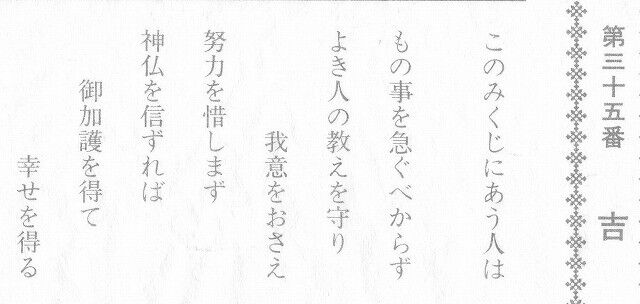 第三十五番 吉
このみくじにあう人は
もの事を急ぐべからず
よき人の教えを守り
我意をおさえ
努力を惜しまず
神仏を信ずれば
御加護を得て
幸せを得る